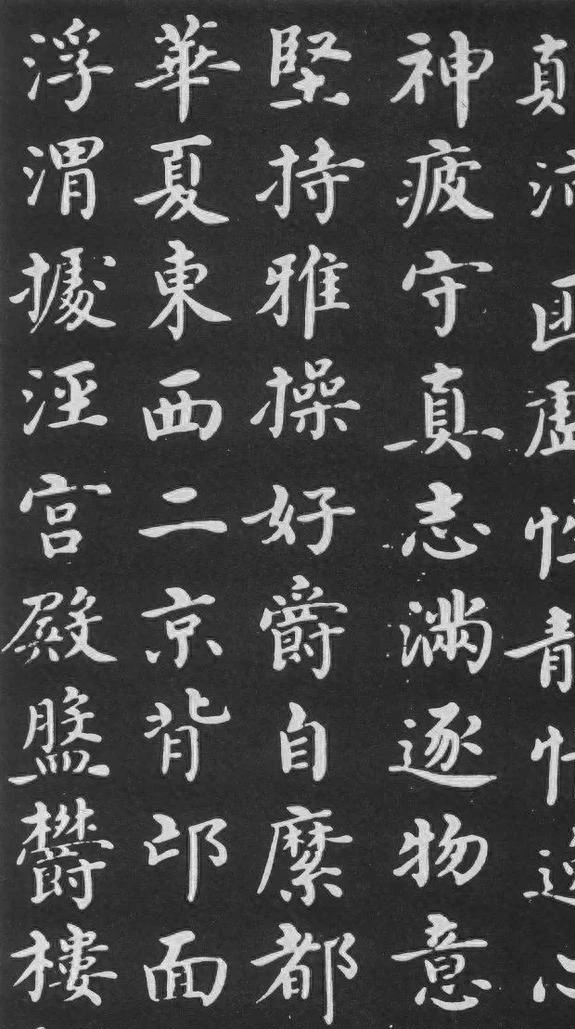 顛沛匪虧性靜情逸心
神疲守真志滿逐物意
堅持雅操好爵自縻都
華夏東西二京背邙面
浮渭據涇宮殿盤鬱樓